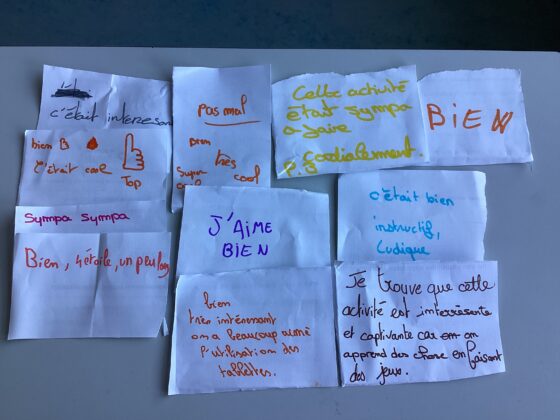 c'était interesan
bien B
c'était cool
Top
Sympa sympa
Bien, 4 étoile, un peu long
pas mal
bien
très
Super
cool
cool
J'AIME
BIEN
bien
trier intéressant
on a beaucoup aimé
l'utilisation des
tablettes.
Cette activité
était sympa
a faire
cordialement.
BIEN
c'était bien
instructif,
Ludique
Je trouve que cette
activité est interressente
et captivante car on
apprend des chose en faisant
des jeux.